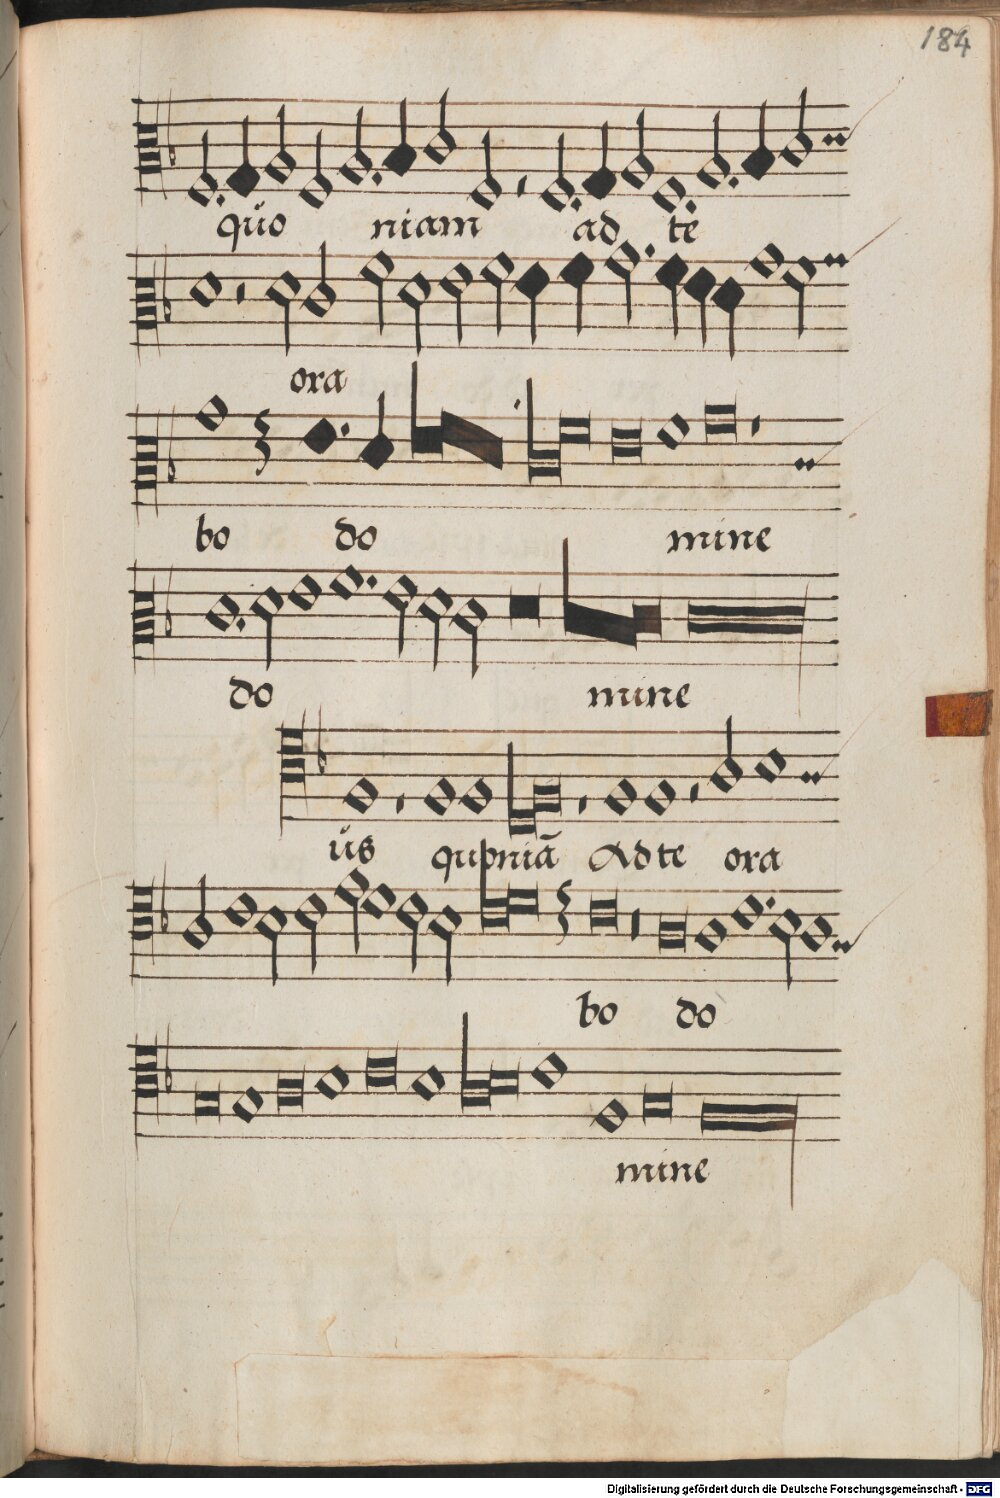 184
quo niam ad te
ora
bo do mine
do mine
us quoniã Ad te ora
bo do
mine
Digitalisierung gefördert durch die Deutsche Forschungsgemeinschaft - DFG